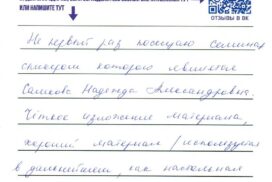 ИЛИ НАПИШИТЕ ТУТ
ОТЗЫВЫ В ВК
Не первый раз посещаю семинар
спикером которого является
Надежда Александровна.
Чёткое изложение материала,
хороший материал /используется
в дальнейшем, как настольная